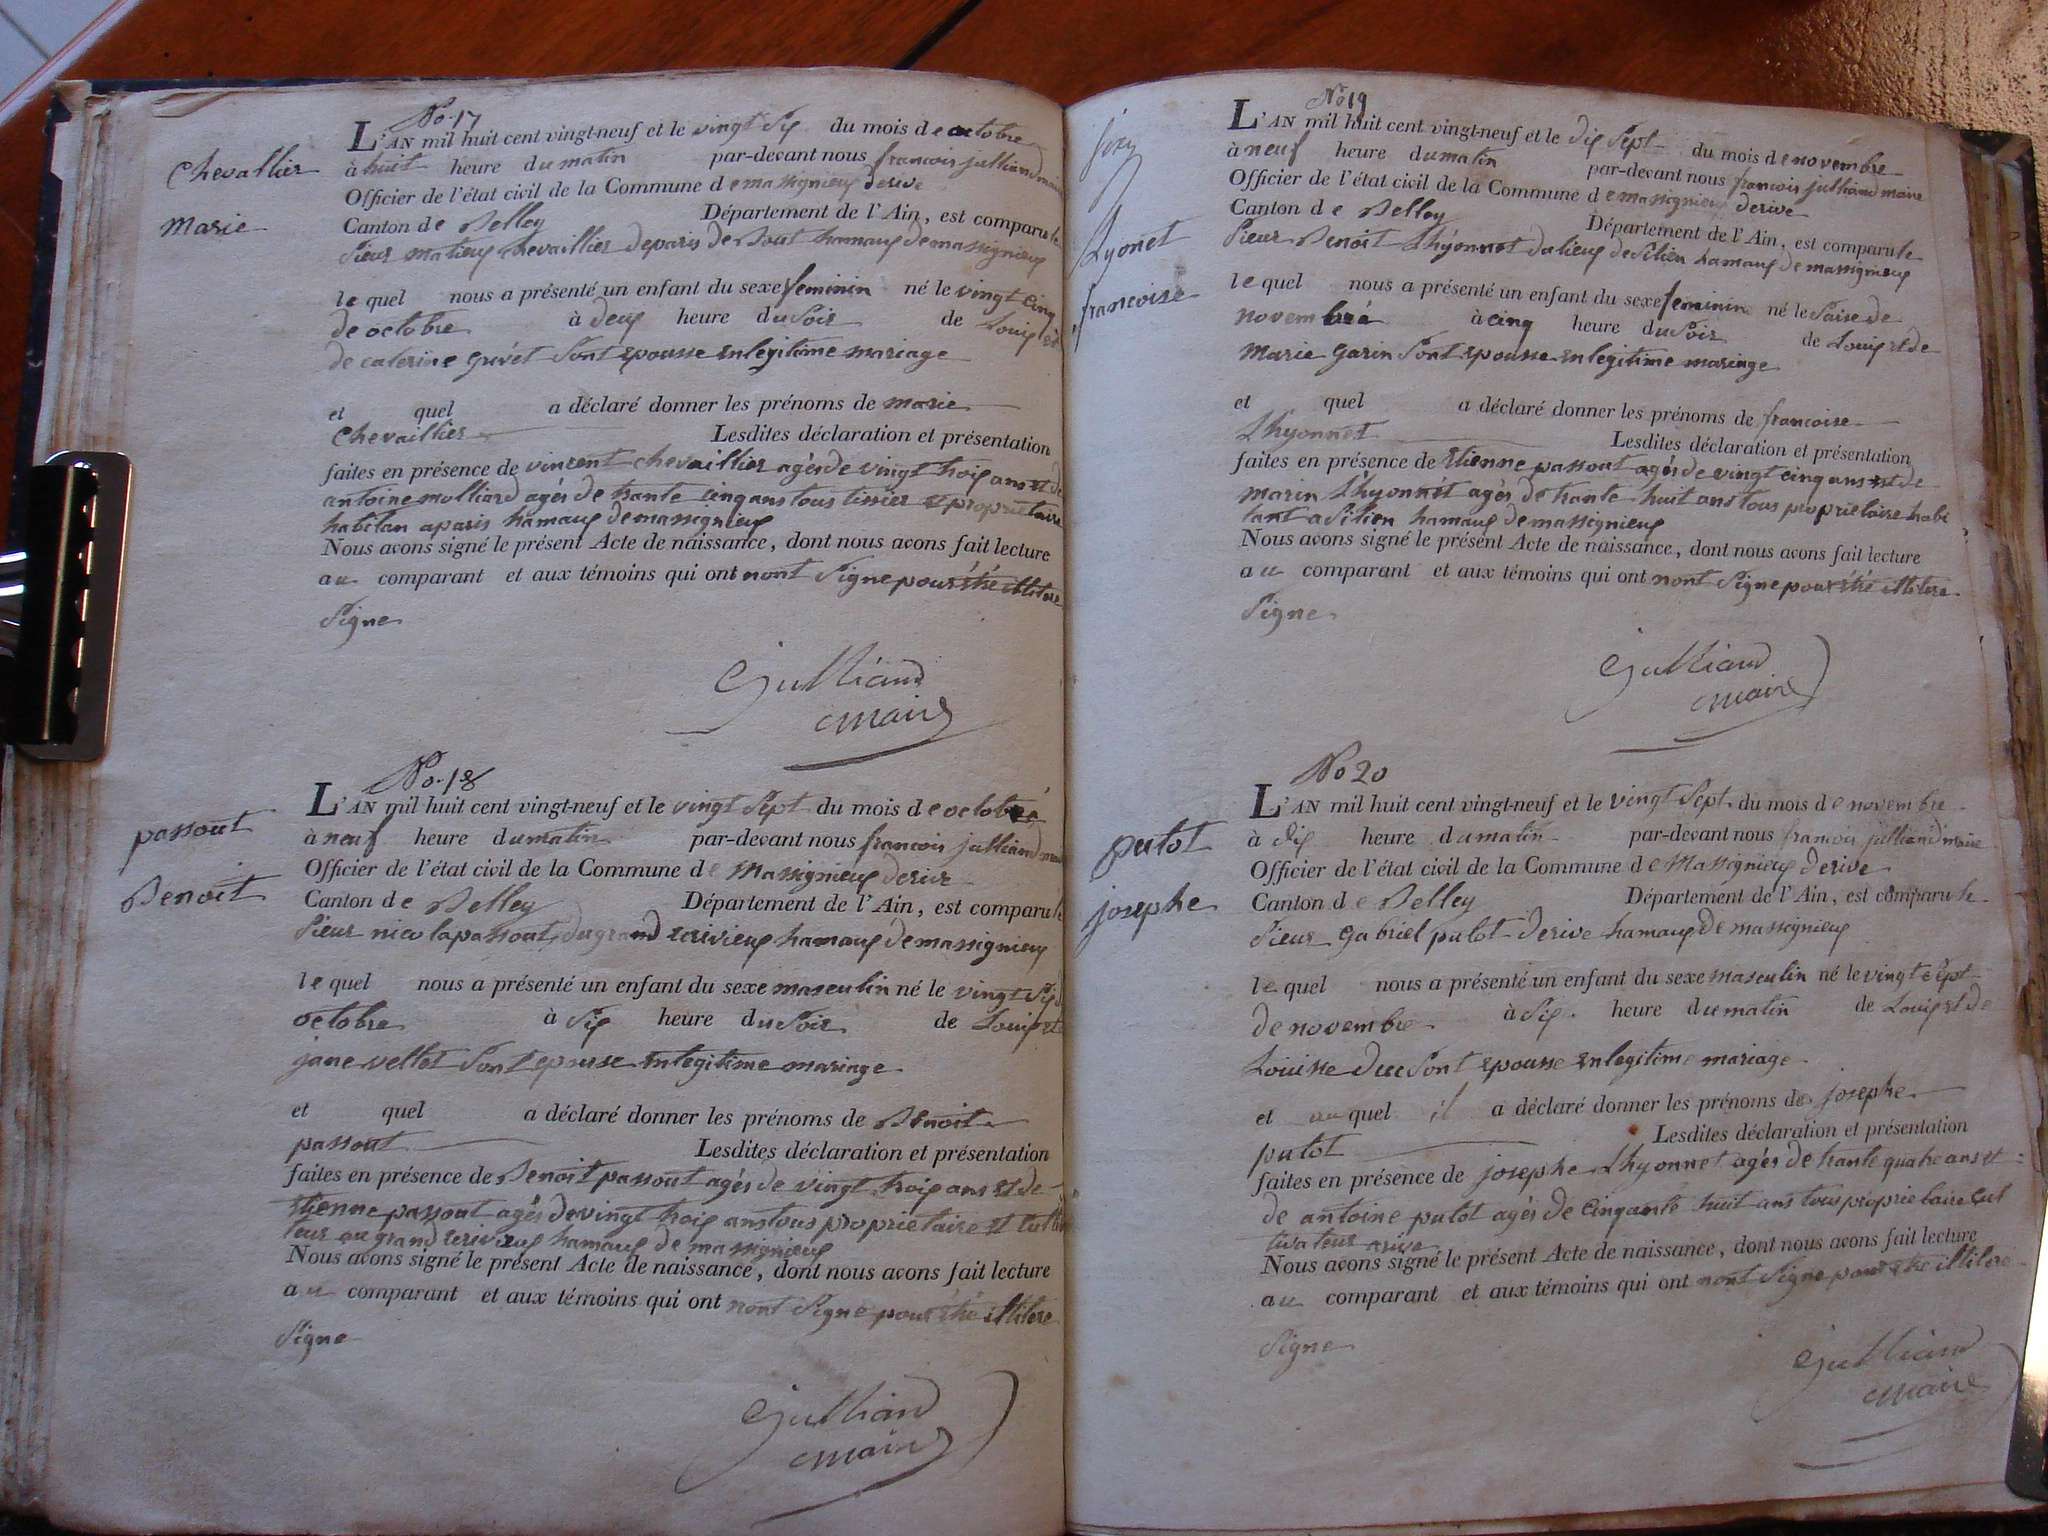 No. 17
L'AN mil huit cent vingt-neuf et le vingt Six du mois de octobre
Chevallier
à huit heure du matin par-devant nous francois julliand maire
Officier de l'état civil de la Commune de massignieux derive
Marie
Canton de Belley Département de l'Ain, est comparu le
Sieur matieux chevaillier de paris de Bout hamaux de massignieux
le quel nous a présenté un enfant du sexe feminin né le vingt cinq
de octobre à deux heure du Soir de Louis et
de caterine guvet Sont epousse en legitime mariage
et quel a déclaré donner les prénoms de marie
Chevaillier Lesdites déclaration et présentation
faites en présence de vincent chevaillier agés de vingt trois ans et de
antoine molliard agés de trante cinq ans tous tissier et proprietaire
habitan a paris hamaux de massignieux
Nous avons signé le présent Acte de naissance, dont nous avons fait lecture
au comparant et aux témoins qui ont nont Signe pour être illitere
Signe
Julliand
maire
No. 18
L'AN mil huit cent vingt-neuf et le vingt Sept du mois de octobre
passout
à neuf heure du matin par-devant nous francois julliand maire
Officier de l'état civil de la Commune de Massignieux derive
Benoit
Canton de Belley Département de l'Ain, est comparu le
Sieur nicola passout du grand ecrivieux hamaux de massignieux
le quel nous a présenté un enfant du sexe masculin né le vingt Six
octobre à Six heure du Soir de Louis et
jane vellet Sont epouse en legitime mariage
et quel a déclaré donner les prénoms de Benoit
passout Lesdites déclaration et présentation
faites en présence de Benoit passout agés de vingt trois ans et de
etienne passout agés de vingt trois ans tous proprietaire et culti
teur au grand ecrivieux hamaux de massignieux
Nous avons signé le présent Acte de naissance, dont nous avons fait lecture
au comparant et aux témoins qui ont nont Signe pour être illitere
Signe
Julliand
maire
No 19
L'AN mil huit cent vingt-neuf et le dix Sept du mois de novembre
à neuf heure du matin par-devant nous francois julliand maire
Officier de l'état civil de la Commune de massignieux derive
Lyonet
Canton de Belley Département de l'Ain, est comparu le
Sieur Benoit Lhyonnet du lieux de Silien hamaux de massignieux
francoise
le quel nous a présenté un enfant du sexe feminin né le Saise de
novembre à cinq heure du Soir de Louis et de
Marie garin Sont epousse en legitime mariage
et quel a déclaré donner les prénoms de francoise
Lhyonnet Lesdites déclaration et présentation
faites en présence de Etienne passout agés de vingt cinq ans et de
marin Lhyonnet agés de trante huit ans tous proprietaire habi
tant a Silien hamaux de massignieux
Nous avons signé le présent Acte de naissance, dont nous avons fait lecture
au comparant et aux témoins qui ont nont Signe pour être illitere
Signe
Julliand
maire
No 20
L'AN mil huit cent vingt-neuf et le vingt Sept du mois de novembre
putot
à dix heure du matin par-devant nous francois julliand maire
Officier de l'état civil de la Commune de Massignieux derive
josephe
Canton de Belley Département de l'Ain, est comparu le
Sieur gabriel putot derive hamaux de massignieux
le quel nous a présenté un enfant du sexe masculin né le vingt Sept
de novembre à Six heure du matin de Louis et de
Louisse duc Sont epousse en legitime mariage
et au quel il a déclaré donner les prénoms de josephe
putot Lesdites déclaration et présentation
faites en présence de josephe Lhyonnet agés de trante quatre ans et
de antoine putot agés de cinqante huit ans tous proprietaire cul
tivateur a rive
Nous avons signé le présent Acte de naissance, dont nous avons fait lecture
au comparant et aux témoins qui ont nont Signe pour être illitere
Signe
Julliand
maire